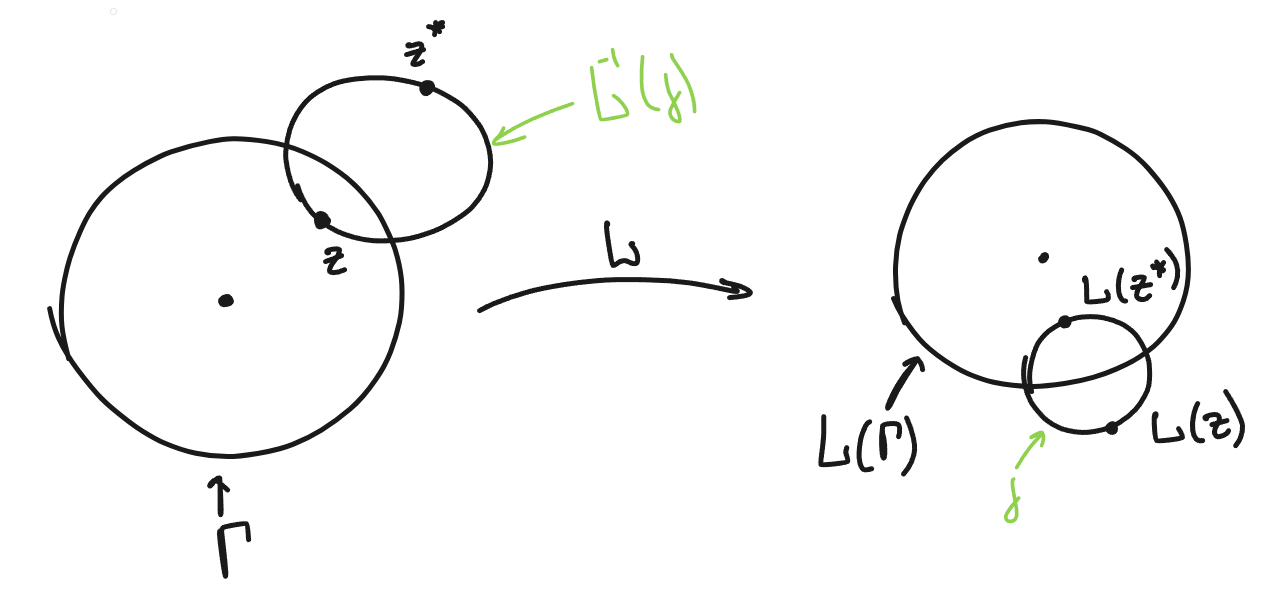 z*
L⁻¹(γ)
z
L
L(z*)
L(Γ)
L(z)
γ
Γ